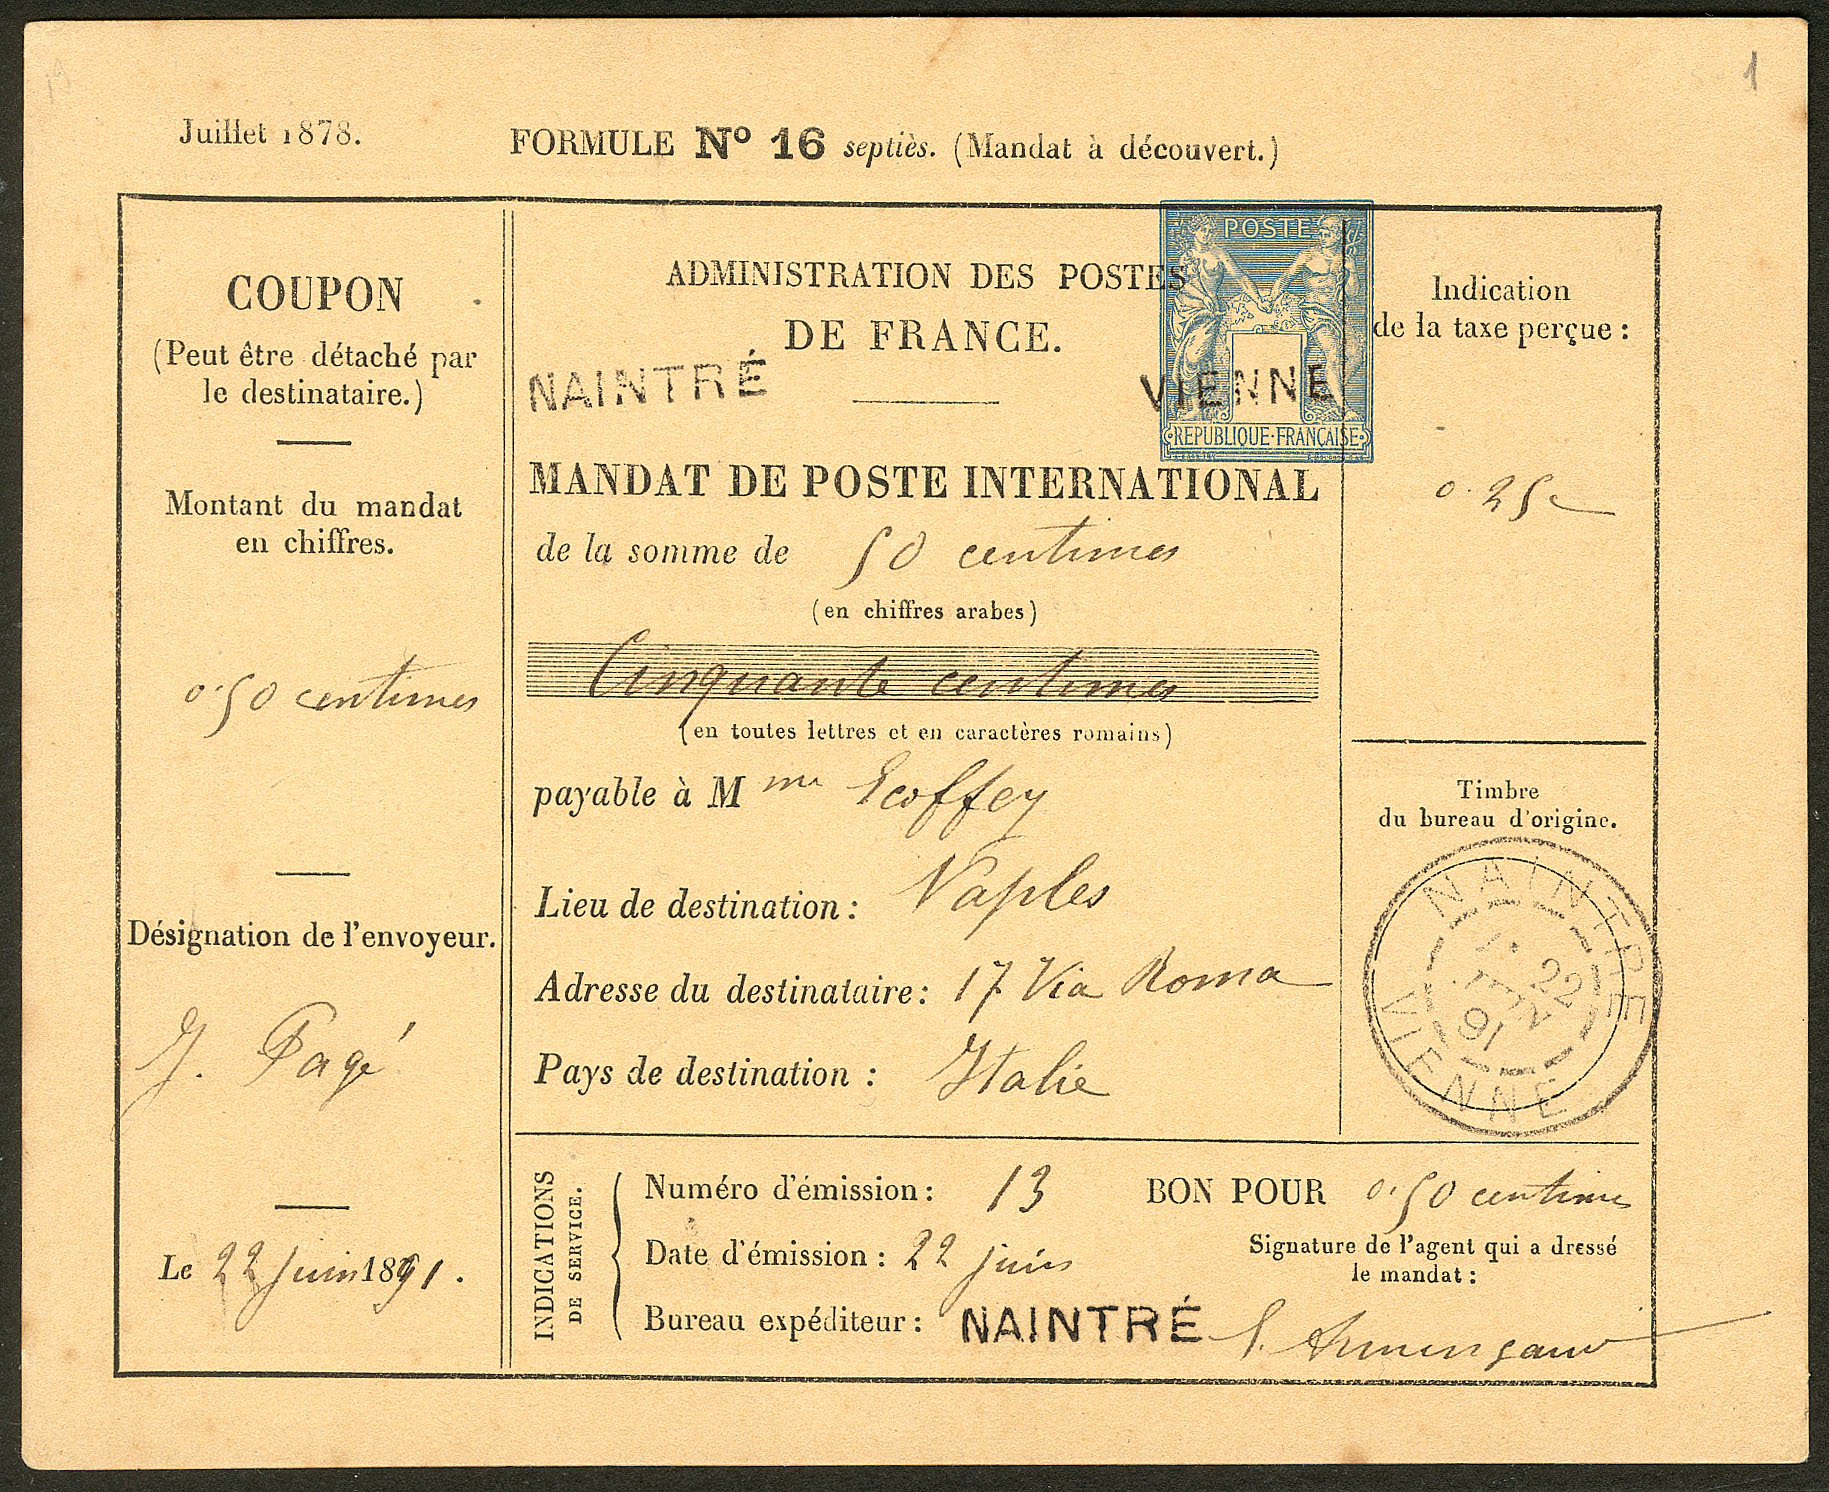 1
Juillet 1878.
FORMULE Nº 16 septiès. (Mandat à découvert.)
COUPON
(Peut être détaché par
le destinataire.)
Montant du mandat
en chiffres.
0.50 centimes
Désignation de l'envoyeur.
J. Pagé
Le 22 juin 1891.
ADMINISTRATION DES POSTES
DE FRANCE.
NAINTRÉ VIENNE
POSTE
REPUBLIQUE·FRANÇAISE
MANDAT DE POSTE INTERNATIONAL
de la somme de 50 centimes
(en chiffres arabes)
Cinquante centimes
(en toutes lettres et en caractères romains)
payable à Mme Ecoffey
Lieu de destination : Naples
Adresse du destinataire : 17 Via Roma
Pays de destination : Italie
Indication
de la taxe perçue :
0.25c
Timbre
du bureau d'origine.
NAINTRE
22
91
VIENNE
INDICATIONS
DE SERVICE.
Numéro d'émission : 13
Date d'émission : 22 juin
Bureau expéditeur : NAINTRÉ
BON POUR 0.50 centimes
Signature de l'agent qui a dressé
le mandat :